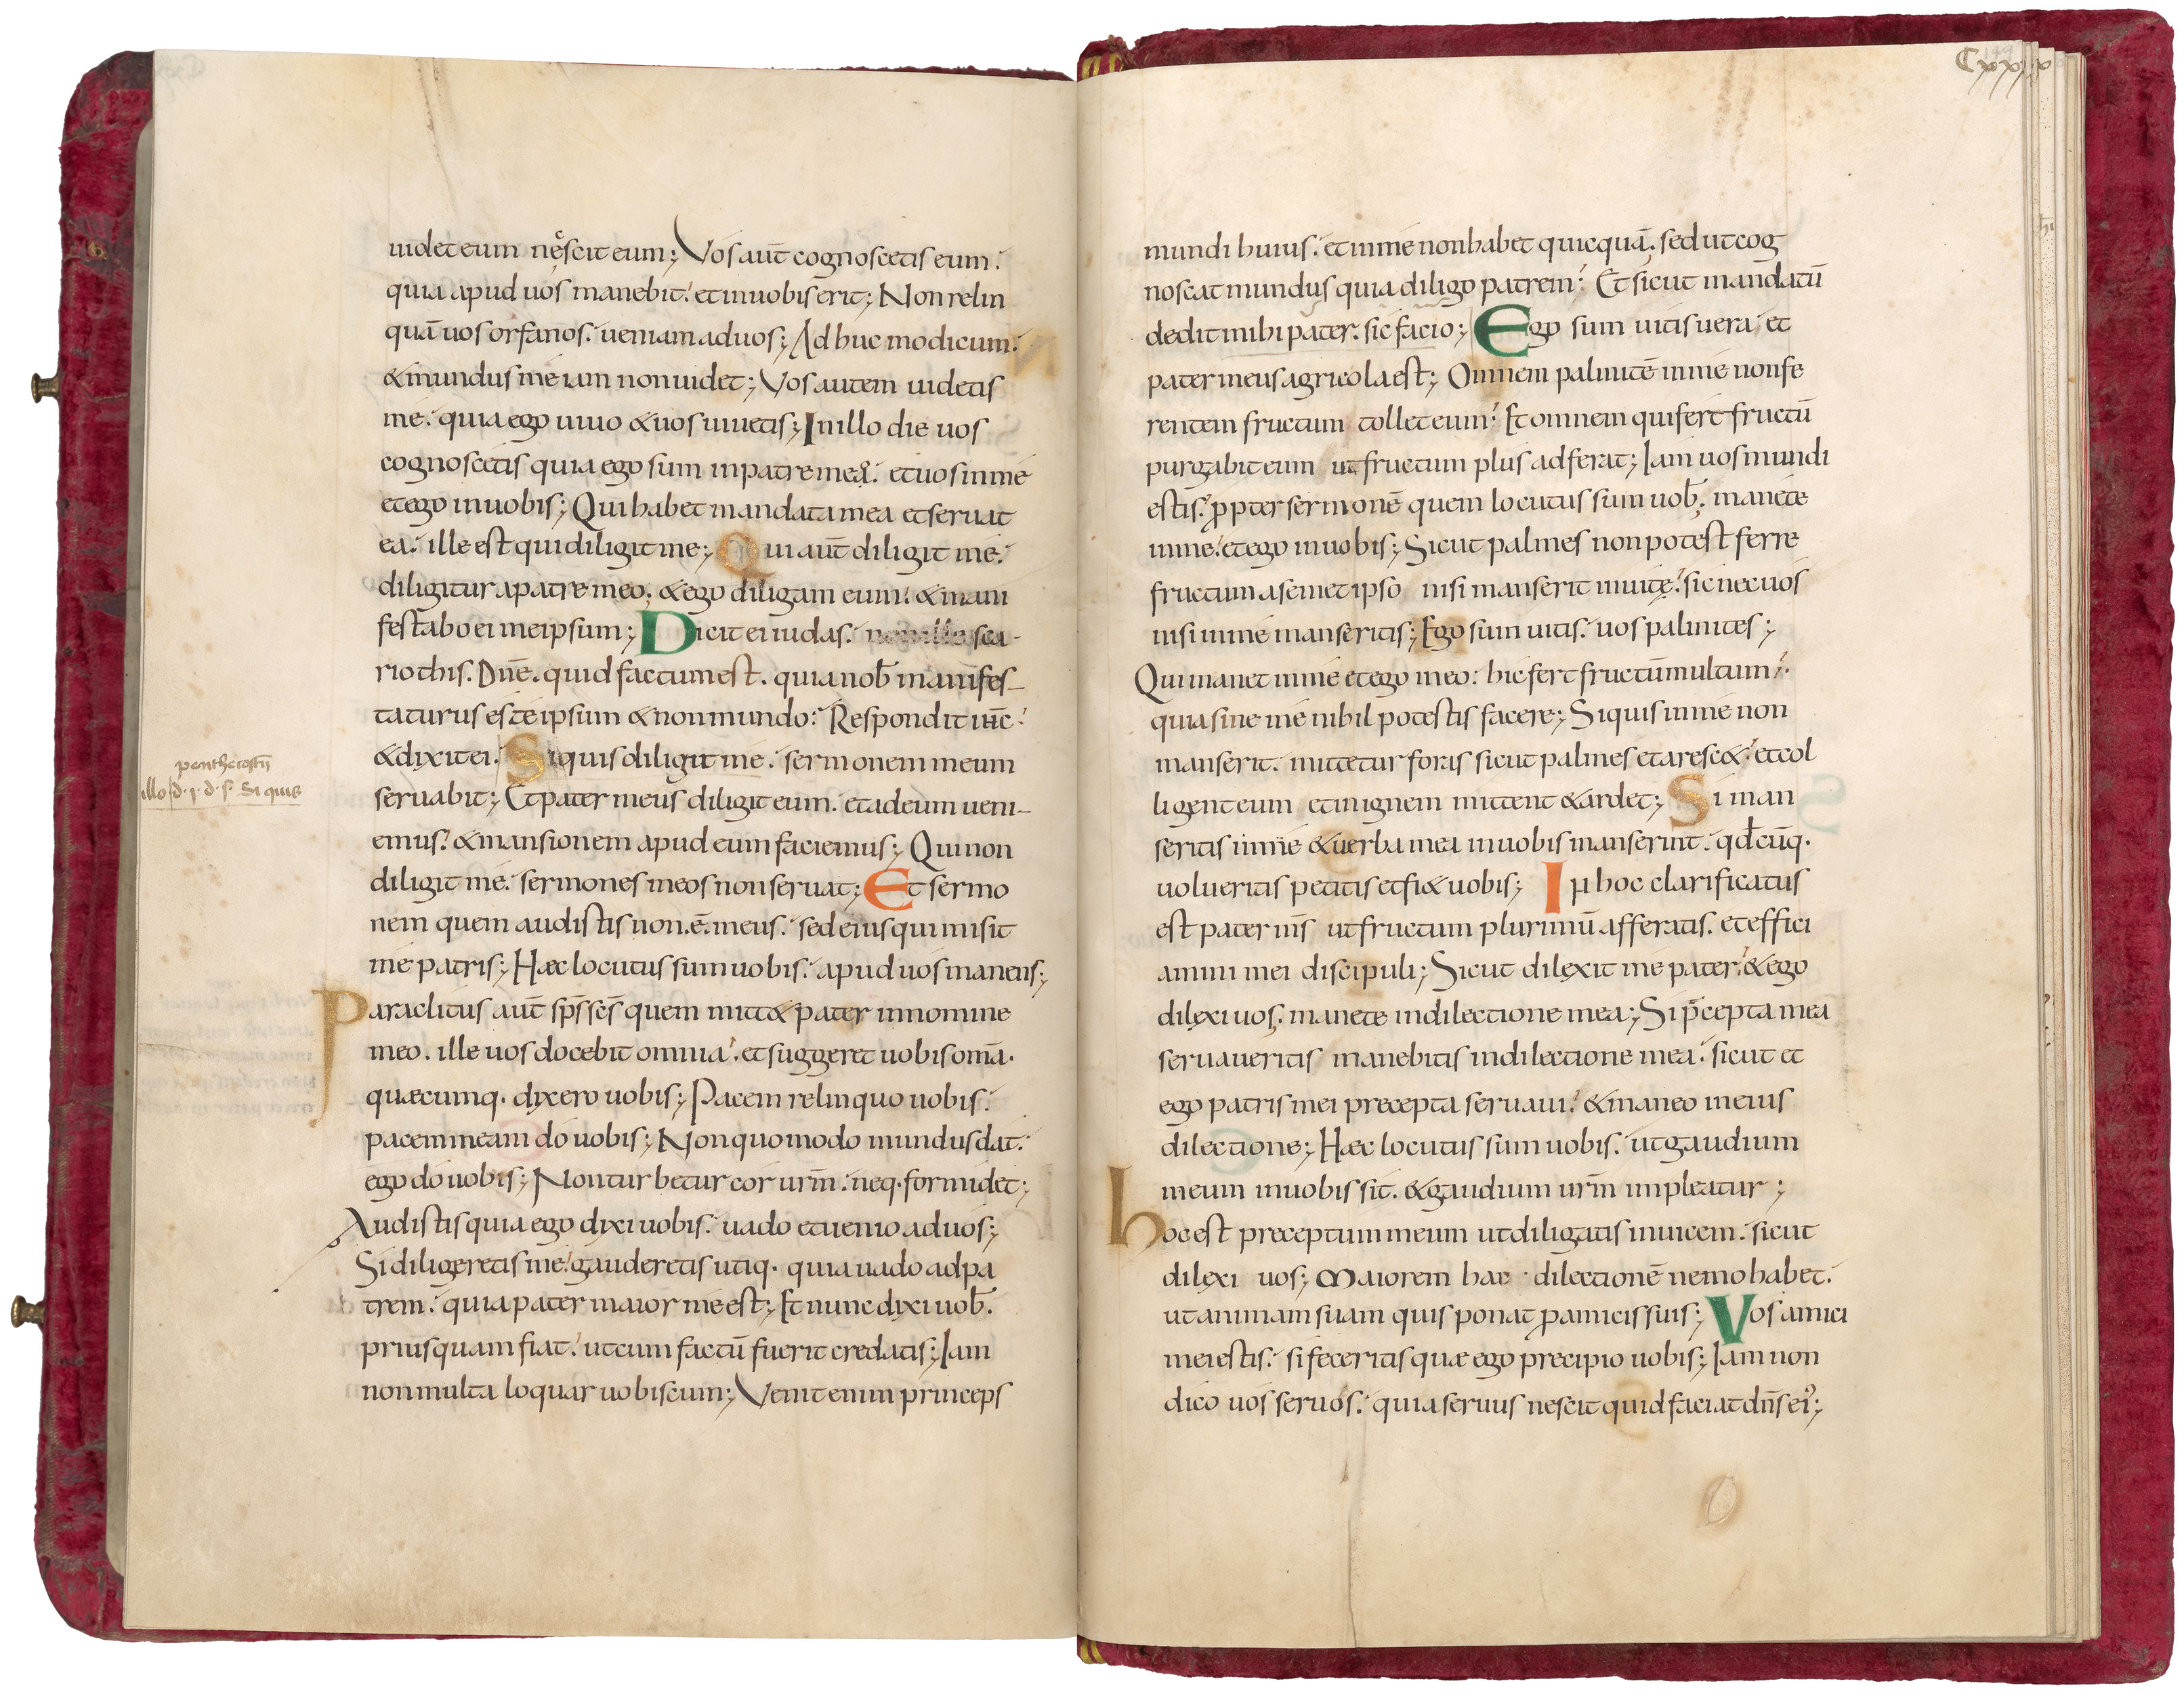 uidet eum nescit eum; Vos aut̄ cognoscetis eum.
quia apud uos manebit. et in uobis erit; Non relin
quā uos orfanos. ueniam ad uos; Adhuc modicum.
& mundus me iam non uidet; Vos autem uidetis
me. quia ego uiuo & uos uiuetis; In illo die uos
cognoscetis quia ego sum in patre meo. et uos in me
et ego in uobis; Qui habet mandata mea et seruat
ea. ille est qui diligit me; Qui aut̄ diligit me.
diligitur a patre meo; & ego diligam eum. & mani
festabo ei me ipsum; Dicit ei iudas. non ille sca-
riothis. Dn̄e. quid factum est. quia nob̄ manifes-
taturus es te ipsum & non mundo. Respondit ih̄c.
& dixit ei. Si quis diligit me. sermonem meum
seruabit; Et pater meus diligit eum. et ad eum ueni-
emus. & mansionem apud eum faciemus; Qui non
diligit me. sermones meos non seruat; Et sermo
nem quem audistis non .ē. meus. sed eius qui misit
me patris; Hæc locutus sum uobis. apud uos manens;
Paraclitus aut̄ sp̄s sc̄s quem mitt& pater in nomine
meo. ille uos docebit omnia. et suggeret uobis om̄a.
quæcumq. dixero uobis; Pacem relinquo uobis.
pacem meam do uobis; Non quomodo mundus dat.
ego do uobis; Non turbetur cor ur̄m. neq. formidet;
Audistis quia ego dixi uobis. uado et uenio ad uos;
Si diligeretis me. gauderetis utiq. quia uado ad pa
trem. quia pater maior me est; Et nunc dixi uob̄.
priusquam fiat. ut cum factū fuerit credatis; Iam
non multa loquar uobiscum; Venit enim princeps
penthecostē
illo
Si quis
Cxxix
mundi huius. et in me non habet quicquā. sed ut cog
noscat mundus quia diligo patrem. Et sicut mandatū
dedit mihi pater. sic facio; Ego sum uitis uera et
pater meus agricola est; Omnem palmitē in me non fe
rentem fructum tollet eum. Et omnem qui fert fructū
purgabit eum ut fructum plus adferat; Iam uos mundi
estis. ꝓpter sermonē quem locutus sum uob̄; manete
in me. et ego in uobis; Sicut palmes non potest ferre
fructum a semet ipso nisi manserit in uite. sic nec uos
nisi in me manseritis; Ego sum uitis. uos palmites;
Qui manet in me et ego in eo. hic fert fructū multum.
quia sine me nihil potestis facere; Si quis in me non
manserit. mittetur foras sicut palmes et aresc&. et col
ligent eum et in ignem mittent & ardet; Si man
seritis in me & uerba mea in uobis manserint. qd̄cūq.
uolueritis petitis et fi& uobis; In hoc clarificatus
est pater m̄s ut fructum plurimū afferatis. et effici
amini mei discipuli; Sicut dilexit me pater. & ego
dilexi uos. manete in dilectione mea; Si p̄cepta mea
seruaueritis manebitis in dilectione mea. sicut et
ego patris mei precepta seruaui. & maneo in eius
dilectione; Hæc locutus sum uobis. ut gaudium
meum in uobis sit. & gaudium ur̄m impleatur;
hoc est preceptum meum ut diligatis inuicem. sicut
dilexi uos; Maiorem hac dilectionē nemo habet.
ut animam suam quis ponat ꝓ amicis suis; Vos amici
mei estis. si feceritis quæ ego precipio uobis; Iam non
dico uos seruos. quia seruus nescit quid faciat dn̄s ei';